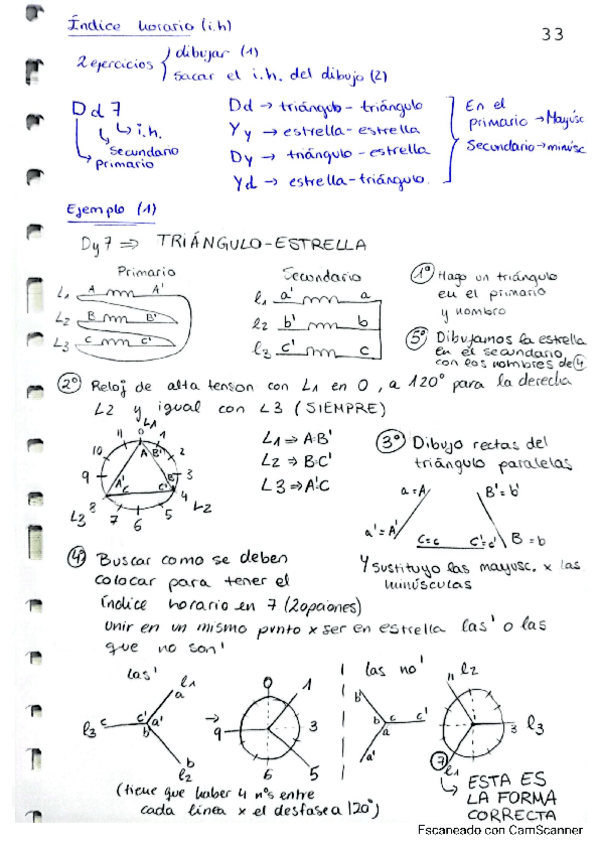 Índice horario (i.h)
33
2 ejercicios { dibujar (1)
sacar el i.h. del dibujo (2)
Dd7
↳ i.h.
↳ secundario
↳ primario
Dd → triángulo - triángulo
Yy → estrella - estrella
Dy → triángulo - estrella
Yd → estrella - triángulo.
En el
primario → Mayúsc
Secundario → minúsc
Ejemplo (1)
Dy7 ⇒ TRIÁNGULO-ESTRELLA
Primario
L1 A A'
L2 B B'
L3 C C'
Secundario
l1 a' a
l2 b' b
l3 c' c
1º Hago un triángulo
en el primario
y nombro
5º Dibujamos la estrella
en el secundario
con los nombres de 4
2º Reloj de alta tension con L1 en 0, a 120º para la derecha
L2 y igual con L3 (SIEMPRE)
L1
11 0 1
10 A B' 2
9 3
A' C C' B
L3 8 4 L2
7 6 5
L1 ⇒ A·B'
L2 ⇒ B·C'
L3 ⇒ A'·C
3º Dibujo rectas del
triángulo paralelas
a=A B'=b'
a'=A' C=c C'=c' B=b
Y sustituyo las mayusc. x las
minúsculas
4º Buscar como se deben
colocar para tener el
índice horario en 7 (2 opciones)
Unir en un mismo punto x ser en estrella las ' o las
que no son '
las '
l1
a
l3 c c' a'
b'
b
l2
→
0 1
9 3
6 5
las no '
b'
b c c'
a
a'
11 l2
3 l3
7 l1
(tiene que haber 4 nºs entre
cada línea x el desfase a 120º)
↳ ESTA ES
LA FORMA
CORRECTA
Escaneado con CamScanner